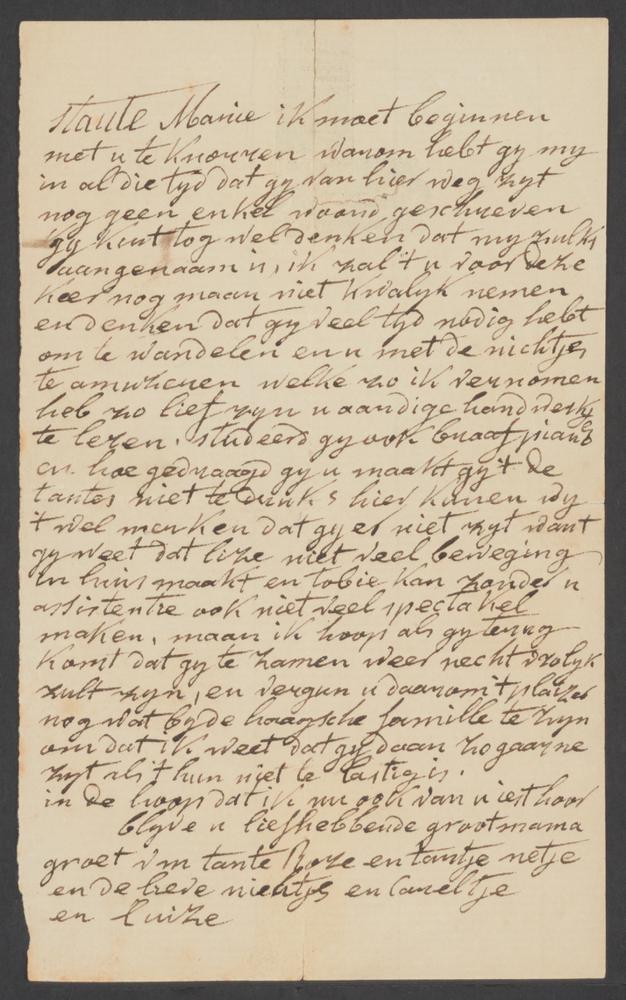 stoute Marie ik moet beginnen
met u te knorren warom hebt gy my
in al die tyd dat gy van hier weg zyt
nog geen enkel woord geschreven
gy kunt tog wel denken dat my zulks
aangenaam is, ik zal 't u voor deze
keer nog maar niet kwalyk nemen
en denken dat gy veel tyd nodig hebt
om te wandelen en u met de nichtjes
te amuzeren welke zo ik vernomen
heb zo lief zyn u aardige handwerkjes
te leren. studeerd gy ook braaf piano
en hoe gedraagd gy u maakt gy 't de
tantes niet te druk hier kunen wy
't wel merken dat gy er niet zyt want
gy weet dat lize niet veel beweging
in huis maakt en tobie kan zonder u
assistentie ook niet veel spectakel
maken, maar ik hoop als gy terug
komt dat gy te zamen weer recht vrolyk
zult zyn, en vergun u daarom 't plaizier
nog wat by de haagsche famille te zyn
om dat ik weet dat gy daar zo gaarne
zyt als 't hun niet te lastig is.
in de hoop dat ik nu ook van u iest hoor
blyve u liefhebbende grootmama
groet v m tante Roze en tantje netje
en de lieve nichtjes en Careltje
en luize